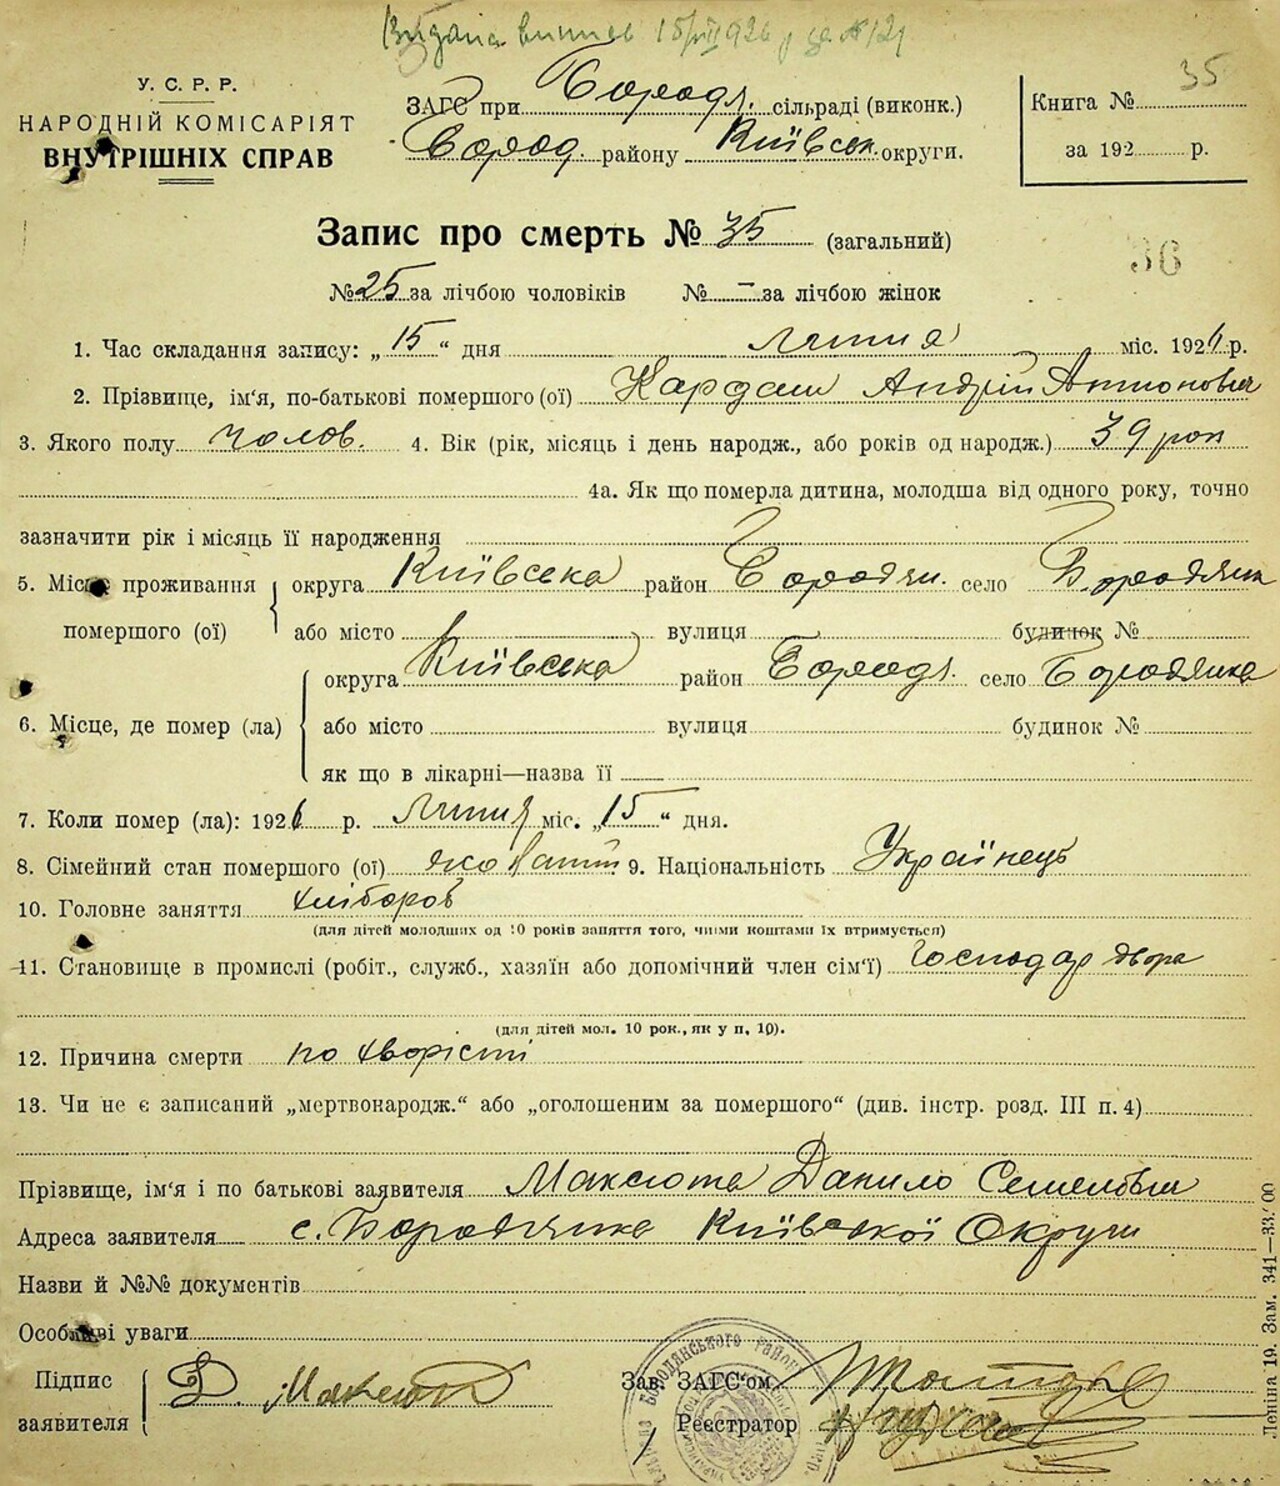 Видана випись 15/VII 1926 р за № 121
У. С. Р. Р.
НАРОДНІЙ КОМІСАРІЯТ
ВНУТРІШНІХ СПРАВ
ЗАГС при Бородя. сільраді (виконк.)
Бород. району Київськ. округи.
35
Книга №
за 192 р.
Запис про смерть № 35 (загальний)
36
№ 25 за лічбою чоловіків № - за лічбою жінок
1. Час складання запису: „15“ дня липня міс. 1926 р.
2. Прізвище, ім‘я, по-батькові помершого (ої) Кардаш Андрій Антонович
3. Якого полу чолов. 4. Вік (рік, місяць і день народж., або років од народж.) 39 рок
4а. Як що померла дитина, молодша від одного року, точно
зазначити рік і місяць її народження
5. Місце проживання помершого (ої) округа Київська район Бородян. село Бородянка
або місто вулиця будинок №
6. Місце, де помер (ла) округа Київська район Бородя. село Бородянка
або місто вулиця будинок №
як що в лікарні—назва її
7. Коли помер (ла): 1926 р. липня міс. „15“ дня.
8. Сімейний стан помершого (ої) 9. Національність Українець
10. Головне заняття хлібороб
(для дітей молодших од 10 років заняття того, чиіми коштами їх втримується)
11. Становище в промислі (робіт., служб., хазяїн або допомічний член сім‘ї) Господар двора
(для дітей мол. 10 рок., як у п. 10).
12. Причина смерти по хворісті
13. Чи не є записаний „мертвонародж.“ або „оголошеним за помершого“ (див. інстр. розд. III п. 4)
Прізвище, ім‘я і по батькові заявителя Максюта Данило Семенович
Адреса заявителя с. Бородянка Київської Округи
Назви й №№ документів
Особливі уваги
Підпис заявителя Д. Максюта
Зав. ЗАГС‘ом
Реєстратор
Бородянського район
Леніна 19. Зам. 341—33.